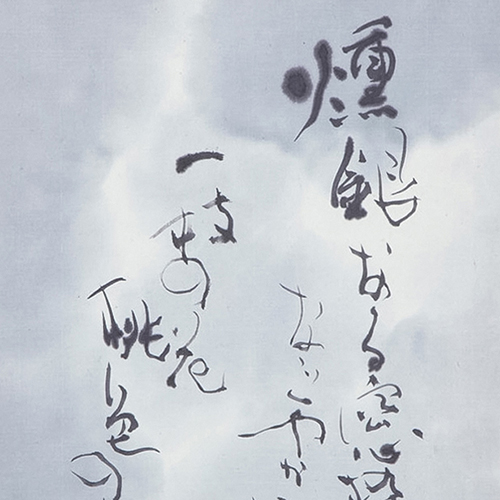 燻銀なる窓枠
なごやか
一枝の花
桃色の